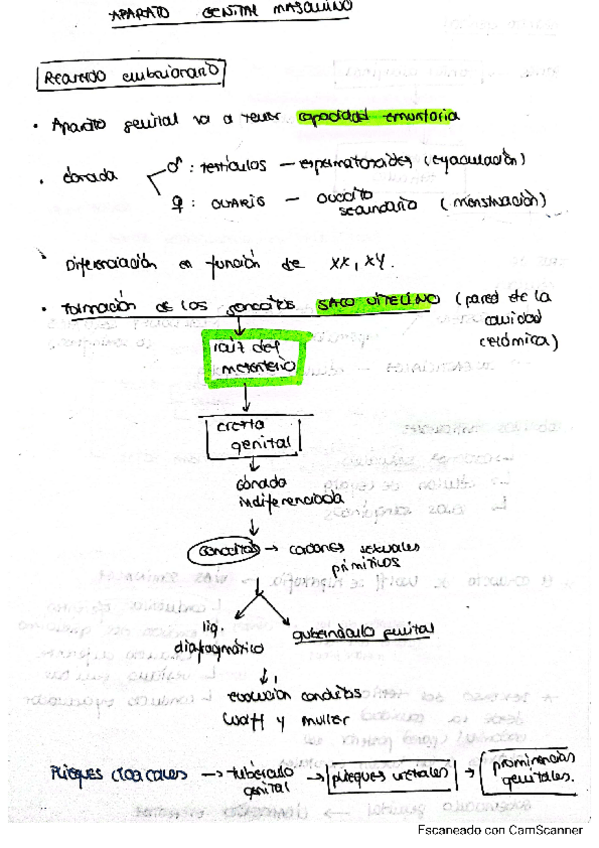 APARATO GENITAL MASCULINO
Recuerdo embrionario
• Aparato genital va a tener capacidad emuntoria
• Gónada
♂: testículos — espermatozoides (eyaculación)
♀: OVARIO — ovocito secundario (menstruación)
• Diferenciación en función de XX, XY.
• Formación de los gonocitos SACO VITELINO (pared de la cavidad celómica)
raiz del
mesenterio
cresta
genital
Gónada
indiferenciada
Gonocitos → cordones sexuales
primitivos
lig.
diafragmático
gubernáculo genital
evolución conductos
Wolff y muller
PLIEGUES CLOACALES → tubérculo genital → pliegues uretrales → prominencias genitales.
Escaneado con CamScanner